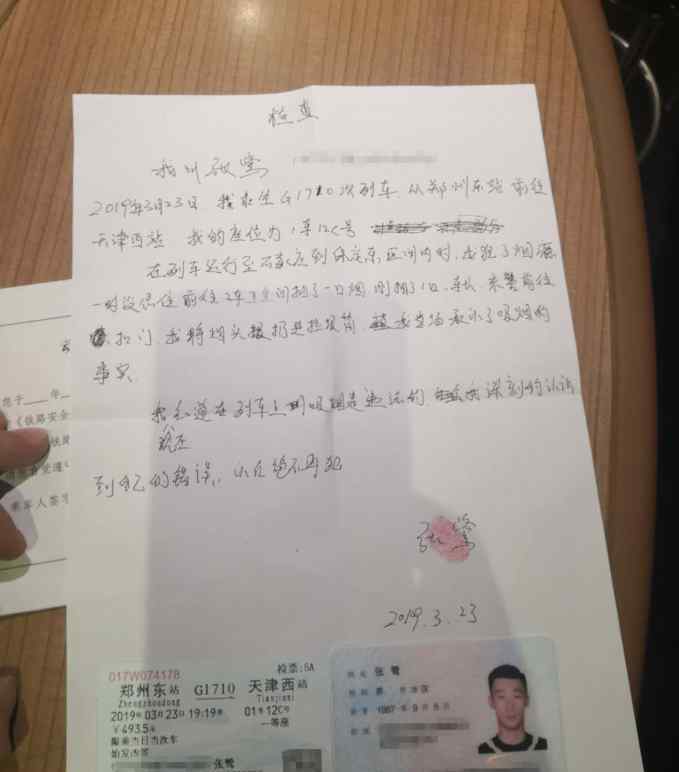 检查
我叫张鸯
2019年3月23日,我乘坐G1710次列车,从郑州东站前往
天津西站 我的座位为1车12C号
在列车运行至石家庄到保定东区间内时,我犯了烟瘾
一时没忍住前往2车卫生间抽了一口烟,刚抽了1口,车长、乘警前往
扣门,我将烟头扔进垃圾筒,我当场承认了吸烟的
事实
我知道在列车上吸烟是违法的 深刻的认识
到自己的错误,以后绝不再犯
2019.3.23
您于____年
《铁路安全
乘车人签字
017W074178
检票:5A
郑州东站 G1710 天津西站
Zhengzhoudong Tianjinxi
2019年03月23日19:19开 01车12C号
¥493.5元 一等座
限乘当日当次车
始发改签